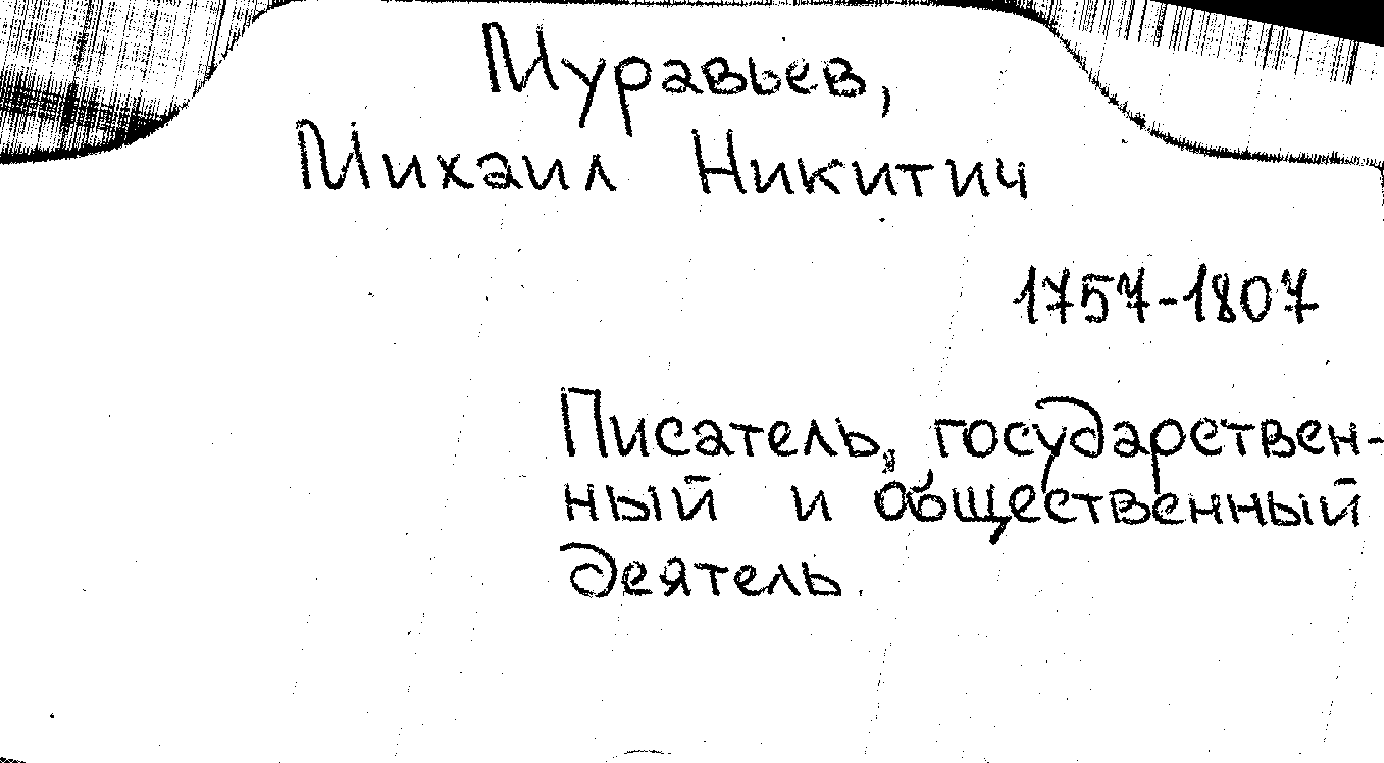 Муравьев,
Михаил Никитич
1757-1807
Писатель, государствен-
ный и общественный
деятель.